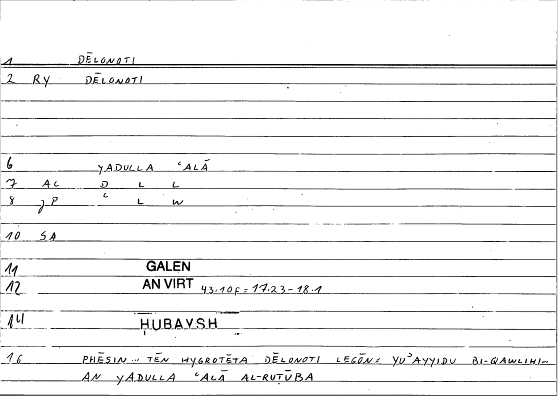 1 DĒLONOTI
2 RY DĒLONOTI
6 YADULLA ʿALĀ
7 AC D L L
8 JP ʿ L W
10 SA
11 GALEN
12 AN VIRT 43.10F = 17.23-18.1
14 ḤUBAYSH
16 PHĒSIN ... TĒN HYGROTĒTA DĒLONOTI LEGŌN: YUʾAYYIDU BI-QAWLIHI-
AN YADULLA ʿALĀ AL-RUṬŪBA